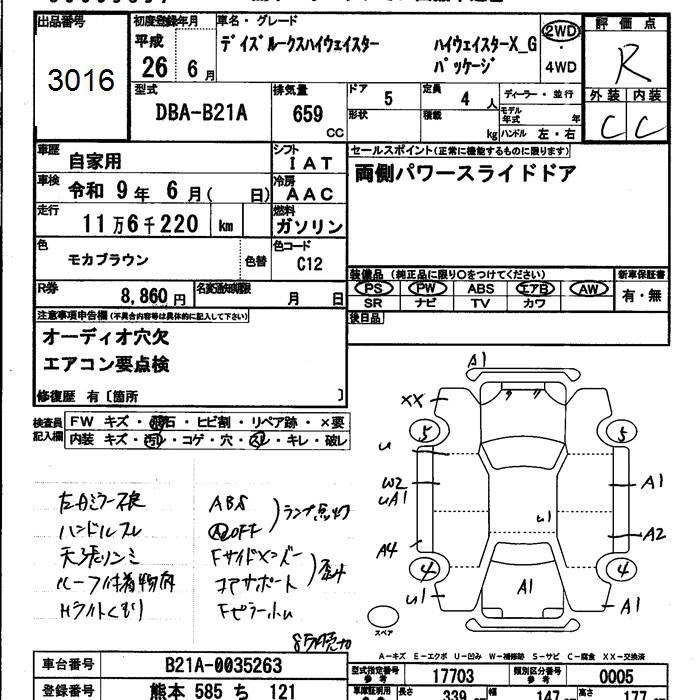 出品番号 初度登録年月 車名・グレード 評価点
3016 平成 26 6月 デイズルークスハイウェイスター ハイウェイスターX_G パッケージ 2WD ・ 4WD R
型式 排気量 ドア 定員 ディーラー・並行 外装 内装
DBA-B21A 659 CC 5 4 人 C C
形状 積載 kg モデル年式 年
ハンドル 左・右
車歴 自家用 シフト IAT セールスポイント(正常に機能するものに限ります)
車検 令和 9年 6月( 日) 冷房 AAC 両側パワースライドドア
走行 11万6千220 km 燃料 ガソリン
色 モカブラウン 色替 色コード C12
装備品 (純正品に限り○をつけてください) 新車保証書
R券 8,860円 名変通知期限 月 日 PS PW ABS エアB AW 有・無
SR ナビ TV カワ
注意事項申告欄(不具合内容等は具体的に記入して下さい) 後日品
オーディオ穴欠
エアコン要点検
修復歴 有〔箇所 〕
検査員記入欄 FW キズ・飛石・ヒビ割・リペア跡・×要
内装 キズ・汚レ・コゲ・穴・スレ・キレ・破レ
A1
XX
5 5
u
W2
uA1
A1
u1
A4 A2
4 4
A1
u1 A1
スペア
ABS
ランプ点灯
OFF
ハンドルスレ
Fサイドメンバー
コアサポート
Hライトくもり
A－キズ E－エクボ U－凹み W－補修跡 S－サビ C－腐食 XX－交換済
車台番号 B21A-0035263 型式指定番号 参考 17703 類別区分番号 参考 0005
登録番号 熊本 585 ち 121 車庫証明用 参考 長さ 339 cm 幅 147 cm 高さ